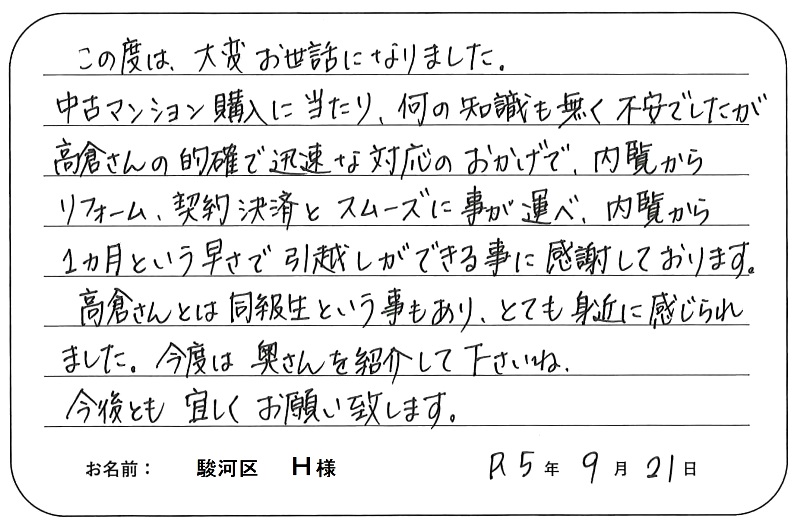 この度は、大変お世話になりました。
中古マンション購入に当たり、何の知識も無く不安でしたが
高倉さんの的確で迅速な対応のおかげで、内覧から
リフォーム、契約決済とスムーズに事が運べ、内覧から
1ヵ月という早さで引越しができる事に感謝しております。
高倉さんとは同級生という事もあり、とても身近に感じられ
ました。今度は奥さんを紹介して下さいね、
今後とも宜しくお願い致します。
お名前： 駿河区 H様 R5年9月21日